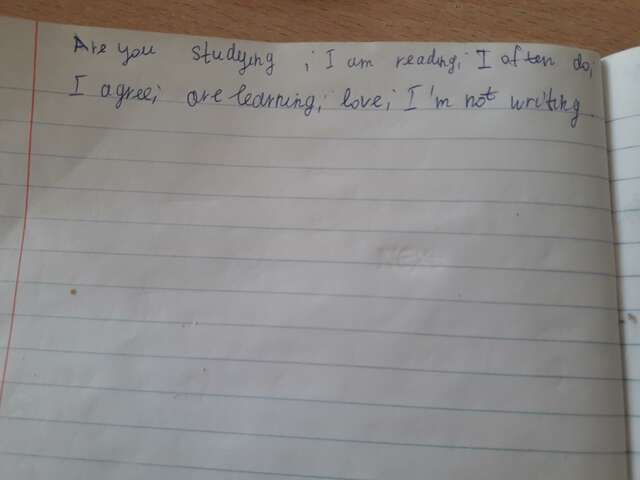 Are you studying ; I am reading; I often do;
I agree; are learning; love; I'm not writing